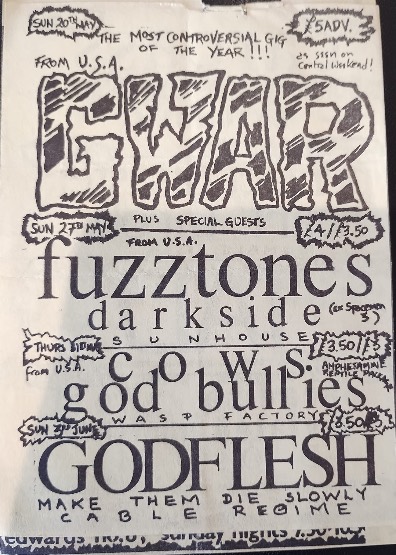 SUN 20TH MAY
£5 ADV.
THE MOST CONTROVERSIAL GIG
OF THE YEAR!!!
as seen on
Central Weekend!
FROM U.S.A.
GWAR
PLUS SPECIAL GUESTS
SUN 27TH MAY
£4//£3.50
FROM U.S.A.
fuzztones
darkside
(ex Spacemen
3)
SUNHOUSE
THURS
£3.50//£3
from U.S.A.
cows.
AMPHETAMINE
REPTILE
god bullies
WASP FACTORY
SUN 3RD JUNE
GODFLESH
MAKE THEM DIE SLOWLY
CABLE REGIME
edwards no.8, sunday nights 7.30-10.